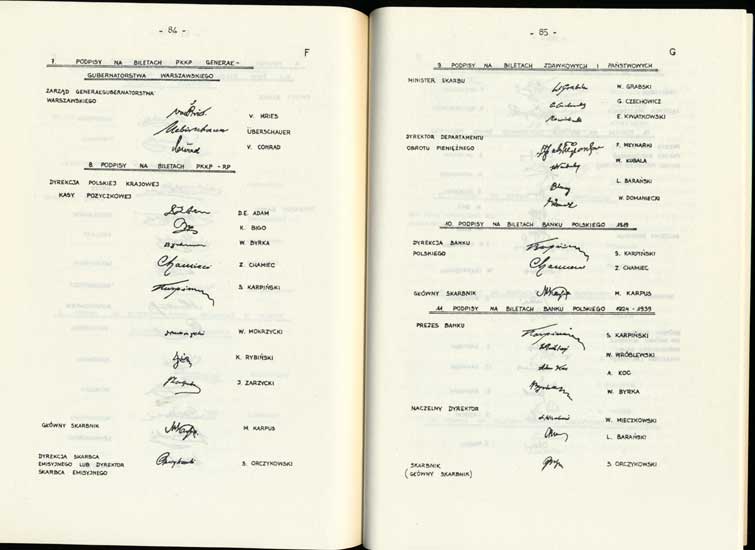 - 84 -
F
7. PODPISY NA BILETACH PKKP GENERAŁ-
GUBERNATORSTWA WARSZAWSKIEGO
ZARZĄD GENERAŁGUBERNATORSTWA
WARSZAWSKIEGO
V. KRIES
ÜBERSCHAUER
V. CONRAD
8. PODPISY NA BILETACH PKKP - RP
DYREKCJA POLSKIEJ KRAJOWEJ
KASY POŻYCZKOWEJ
D.E. ADAM
K. BIGO
W. BYRKA
Z. CHAMIEC
S. KARPIŃSKI
W. MOKRZYCKI
K. RYBIŃSKI
J. ZARZYCKI
GŁÓWNY SKARBNIK
M. KARPUS
DYREKCJA SKARBCA
EMISYJNEGO LUB DYREKTOR
SKARBCA EMISYJNEGO
S. ORCZYKOWSKI
- 85 -
G
9. PODPISY NA BILETACH ZDAWKOWYCH I PAŃSTWOWYCH
MINISTER SKARBU
W. GRABSKI
G. CZECHOWICZ
E. KWIATKOWSKI
DYREKTOR DEPARTAMENTU
OBROTU PIENIĘŻNEGO
F. MŁYNARKI
W. KUBALA
L. BARAŃSKI
W. DOMANIECKI
10. PODPISY NA BILETACH BANKU POLSKIEGO 1919
DYREKCJA BANKU
POLSKIEGO
S. KARPIŃSKI
Z. CHAMIEC
GŁÓWNY SKARBNIK
M. KARPUS
11. PODPISY NA BILETACH BANKU POLSKIEGO 1924 - 1939
PREZES BANKU
S. KARPIŃSKI
W. WRÓBLEWSKI
A. KOC
W. BYRKA
NACZELNY DYREKTOR
W. MIECZKOWSKI
L. BARAŃSKI
SKARBNIK
(GŁÓWNY SKARBNIK)
S. ORCZYKOWSKI